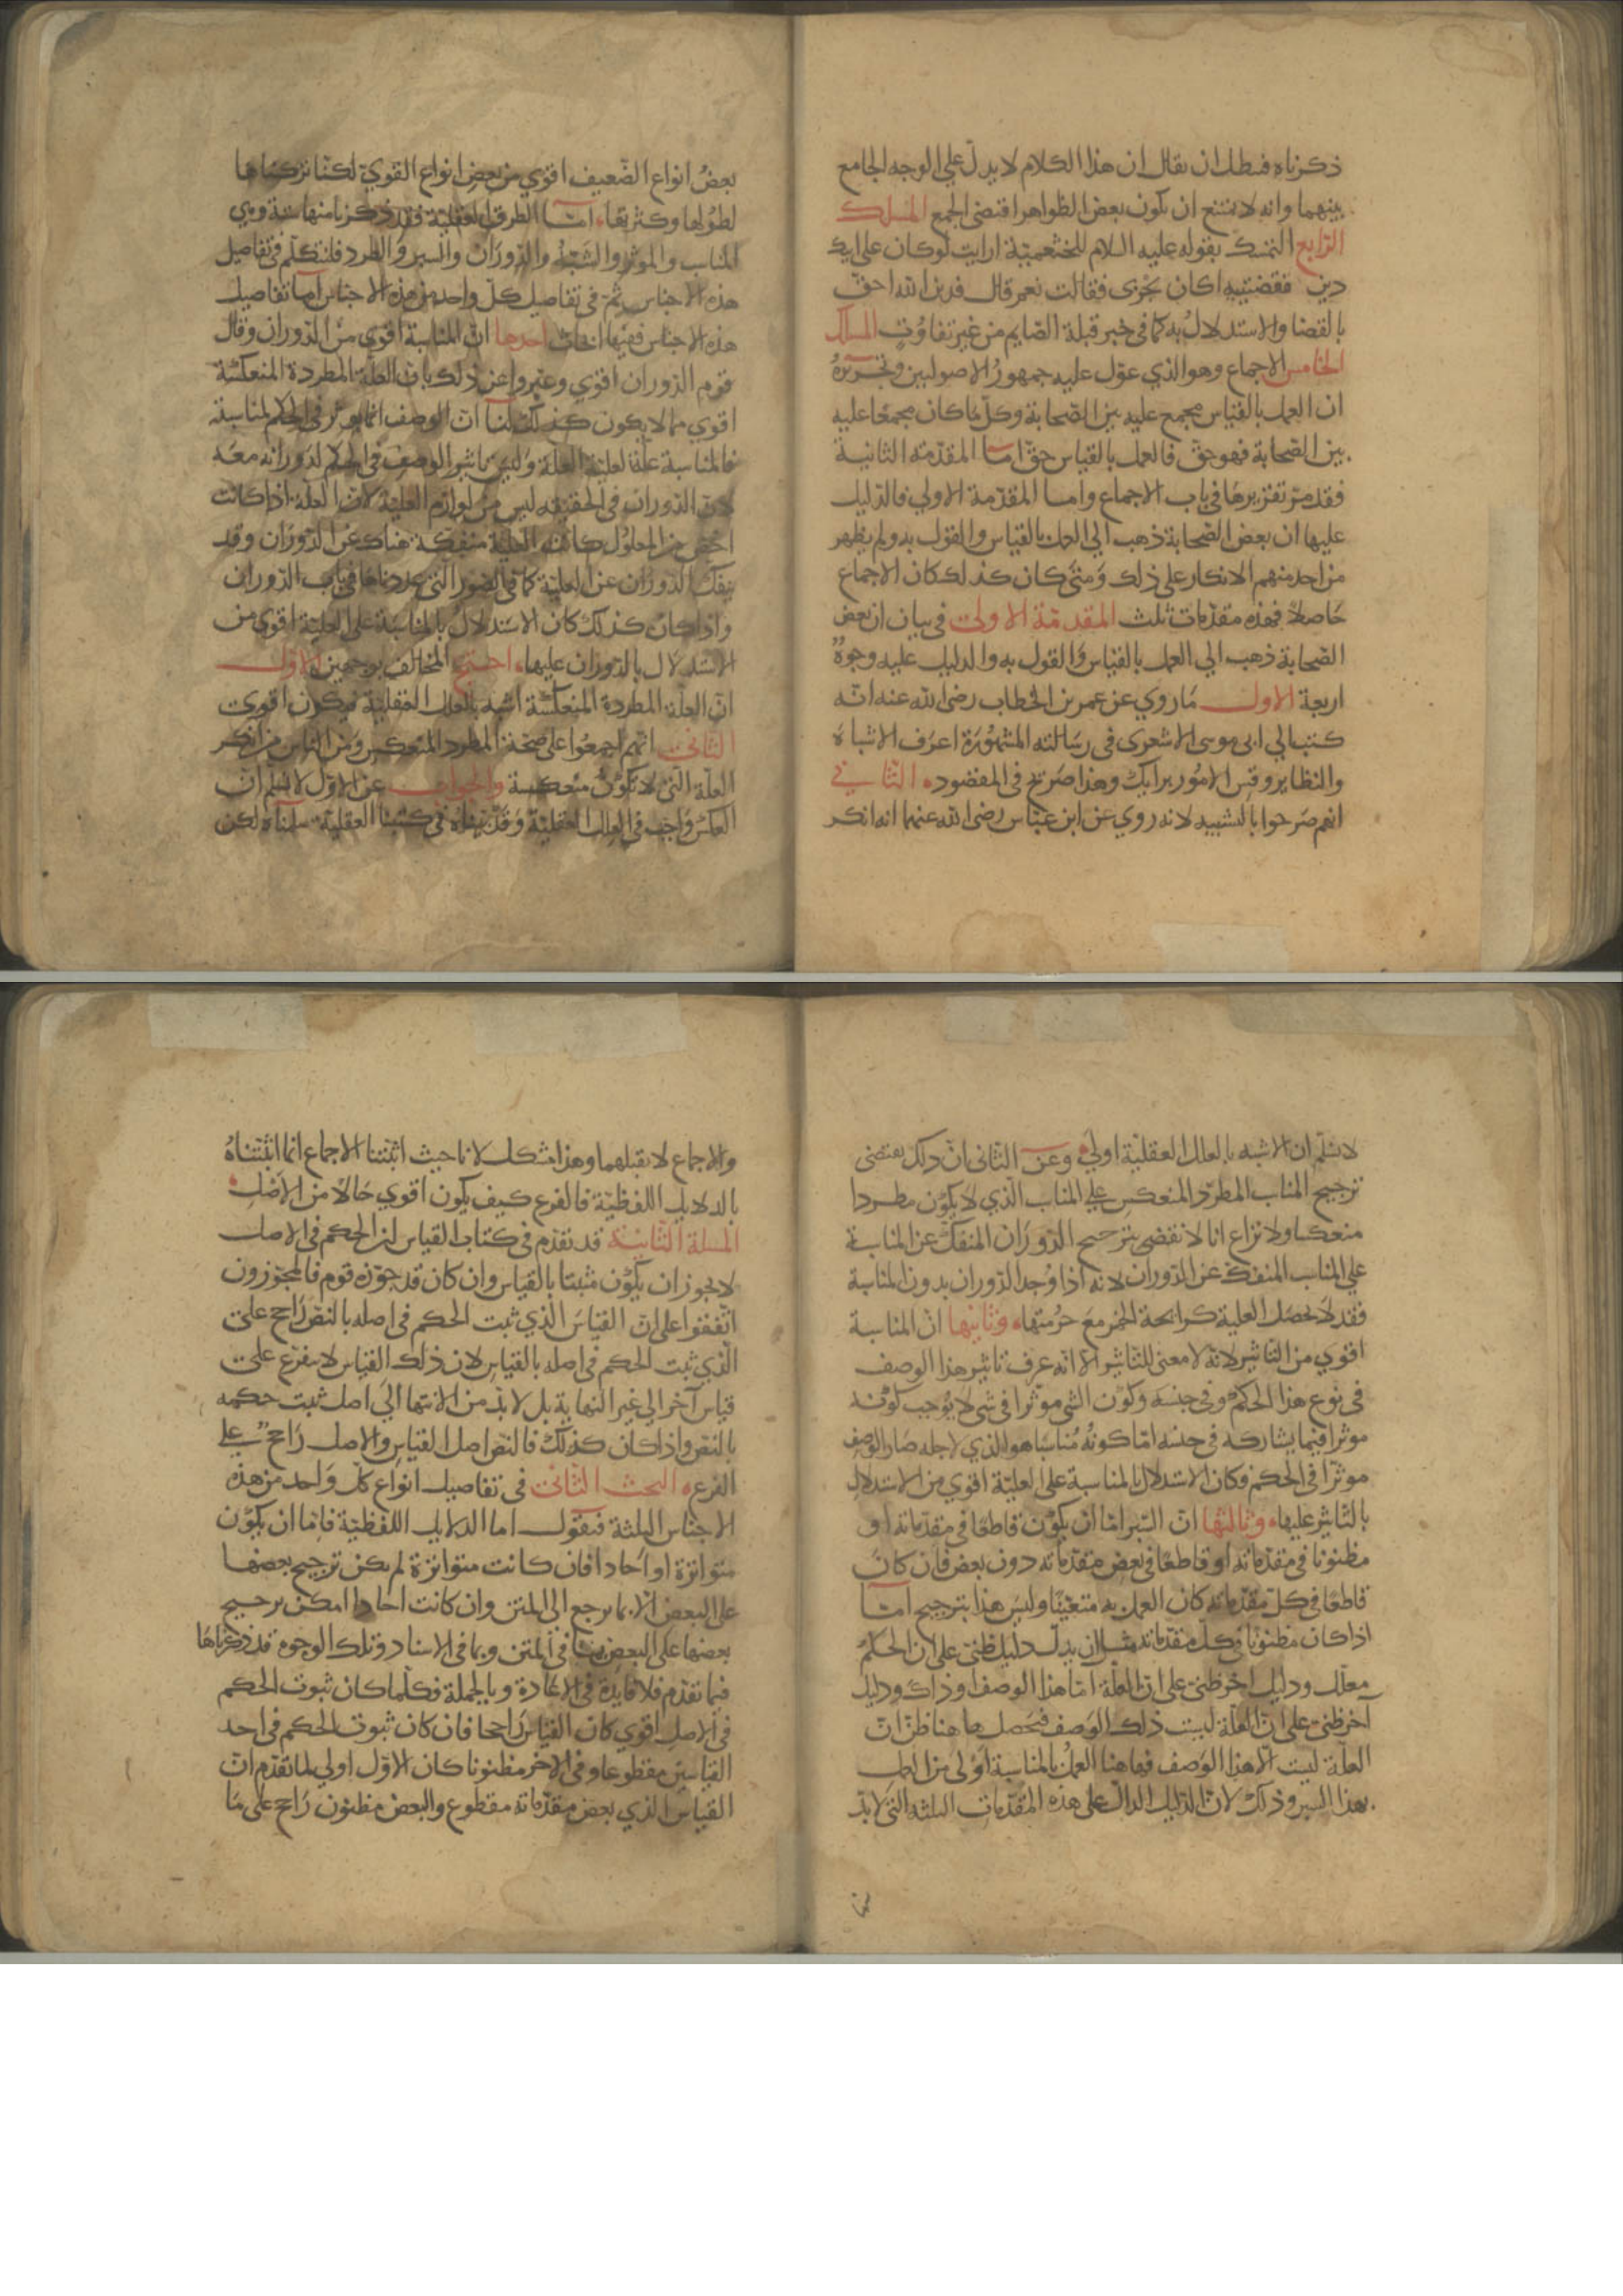 ذكرناه فبطل ان يقال ان هذا الكلام لا يدل علي الوجه الجامع
بينهما وانه لا يمتنع ان يكون بعض الظواهر اقتضى الجمع المسلك
الرابع التمسك بقوله عليه السلام للخثعمية ارايت لو كان على ابيك
دين فقضيتيه اكان يجزى فقالت نعم قال فدين الله احق
بالقضا والاستدلال به كما في خبر قبلة الصايم من غير تفاوت المسلك
الخامس الاجماع وهو الذي عول عليه جمهور الاصوليين وتحريره
ان العمل بالقياس مجمع عليه بين الصحابة وكل ما كان مجمعا عليه
بين الصحابة فهو حق فالعمل بالقياس حق اما المقدمة الثانية
فقد مر تقريرها في باب الاجماع واما المقدمة الاولي فالدليل
عليها ان بعض الصحابة ذهب الي العمل بالقياس والقول به ولم يظهر
من احد منهم الانكار على ذلك ومتى كان كذلك كان الاجماع
حاصلا فهذه مقدمات ثلث المقدمة الاولى في بيان ان بعض
الصحابة ذهب الي العمل بالقياس والقول به والدليل عليه وجوه
اربعة الاول ما روي عن عمر بن الخطاب رضى الله عنه انه
كتب الي ابى موسى الاشعرى في رسالته المشهورة اعرف الاشباه
والنظاير وقس الامور برايك وهذا صريح في المقصود الثاني
انهم صرحوا بالتشبيه لانه روي عن ابن عباس رضى الله عنهما انه انكر
بعض انواع الضعيف اقوي من بعض انواع القوي لكنا تركناها
لطولها وكثرتها اما الطرق العقلية فقد ذكرنا منها ستة وهي
المناسب والموثر والشبه والدوران والسبر والطرد فلنتكلم في تفاصيل
هذه الاجناس ثم في تفاصيل كل واحد من هذه الاجناس اما تفاصيل
هذه الاجناس ففيها ابحاث احدها ان المناسبة اقوي من الدوران وقال
قوم الدوران اقوي وعبروا عن ذلك بان العلة المطردة المنعكسة
اقوي مما لا يكون كذلك لنا ان الوصف انما يوثر في الحكم لمناسبته
فالمناسبة علة لعلية العلة وليس تاثير الوصف في الحكم لدورانه معه
لان الدوران في الحقيقة ليس من لوازم العلية لان العلة اذا كانت
اخص من المعلول كانت العلية منفكة هناك عن الدوران وقد
ينفك الدوران عن العلية كما في الصور التي عددناها في باب الدوران
واذا كان كذلك كان الاستدلال بالمناسبة على العلية اقوي من
الاستدلال بالدوران عليها احتج المخالف بوجهين الاول
ان العلة المطردة المنعكسة اشبه بالعلل العقلية فيكون اقوى
الثاني انهم اجمعوا على صحة المطرد المنعكس ومن الناس من انكر
العلة التي لا تكون منعكسة والجواب عن الاول لا نسلم ان
العكس واجب في العلل العقلية وقد بيناه في كتبنا العقلية سلمناه لكن
لا نسلم ان الاشبه بالعلل العقلية اولي وعن الثاني ان ذلك يقتضى
ترجيح المناسب المطرد المنعكس علي المناسب الذي لا يكون مطردا
منعكسا ولا نزاع انا لا نقضى بترجيح الدوران المنفك عن المناسبة
علي المناسب المنفك عن الدوران لانه اذا وجد الدوران بدون المناسبة
فقد لا يحصل العلية كرايحة الخمر مع حرمتها وثانيها ان المناسبة
اقوي من التاثير لانه لا معنى للتاثير الا انه عرف تاثير هذا الوصف
في نوع هذا الحكم وفي جنسه وكون الشي موثرا في شي لا يوجب كونه
موثرا فيما يشاركه في جنسه اما كونه مناسبا هو الذي لاجله صار الوصف
موثرا في الحكم فكان الاستدلال بالمناسبة على العلية اقوي من الاستدلال
بالتاثير عليها وثالثها ان السبر اما ان يكون قاطعا في مقدماته او
مظنونا في مقدماته او قاطعا في بعض مقدماته دون بعض فان كان
قاطعا في كل مقدماته كان العمل به متعينا وليس هذا بترجيح اما
اذا كان مظنونا في كل مقدماته مثل ان يدل دليل ظني على ان الحكم
معلل ودليل اخر ظني على ان العلة اما هذا الوصف او ذاك ودليل
آخر ظني على ان العلة ليست ذلك الوصف فيحصل هاهنا ظن ان
العلة ليست الا هذا الوصف فهاهنا العمل بالمناسبة اولى من العمل
بهذا السبر وذلك لان الدليل الدال على هذه المقدمات الثلثة التي لابد
والاجماع لا يقبلهما وهذا مشكل لانا حيث اثبتنا الاجماع انما اثبتناه
بالدلايل اللفظية فالفرع كيف يكون اقوي حالا من الاصل
المسلة الثانية قد تقدم في كتاب القياس ان الحكم في الاصل
لا يجوز ان يكون مثبتا بالقياس وان كان قد جوزه قوم فالمجوزون
اتفقوا على ان القياس الذي ثبت الحكم في اصله بالنص راجح على
الذي ثبت الحكم في اصله بالقياس لان ذلك القياس لا يتفرع على
قياس آخر الي غير النهاية بل لا بد من الانتها الي اصل ثبت حكمه
بالنص واذا كان كذلك فالنص اصل القياس والاصل راجح علي
الفرع البحث الثاني في تفاصيل انواع كل واحد من هذه
الاجناس الثلثة فنقول اما الدلايل اللفظية فاما ان يكون
متواترة او احادا فان كانت متواترة لم يكن ترجيح بعضها
على البعض الا بما يرجع الي المتن وان كانت احادا امكن ترجيح
بعضها على البعض بما في المتن وبما في الاسناد وتلك الوجوه قد ذكرناها
فيما تقدم فلا فايدة في الاعادة وبالجملة فكلما كان ثبوت الحكم
في الاصل اقوي كان القياس راجحا فان كان ثبوت الحكم في احد
القياسين مقطوعا وفي الاخر مظنونا كان الاول اولي لما تقدم ان
القياس الذي بعض مقدماته مقطوع والبعض مظنون راجح على ما